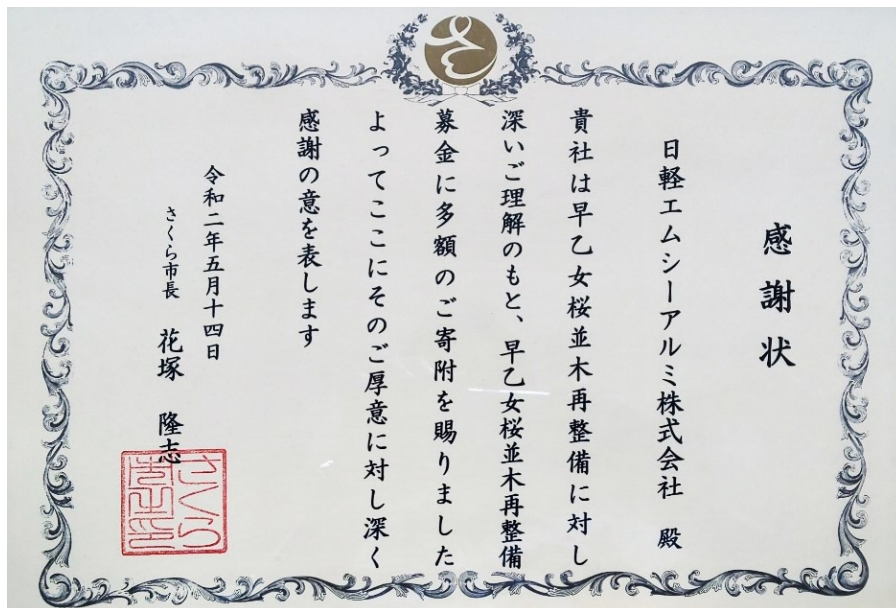 感謝状
日軽エムシーアルミ株式会社　殿
貴社は早乙女桜並木再整備に対し
深いご理解のもと、早乙女桜並木再整備
募金に多額のご寄附を賜りました
よってここにそのご厚意に対し深く
感謝の意を表します
令和二年五月十四日
さくら市長　花塚　隆志
さくら
市長之印